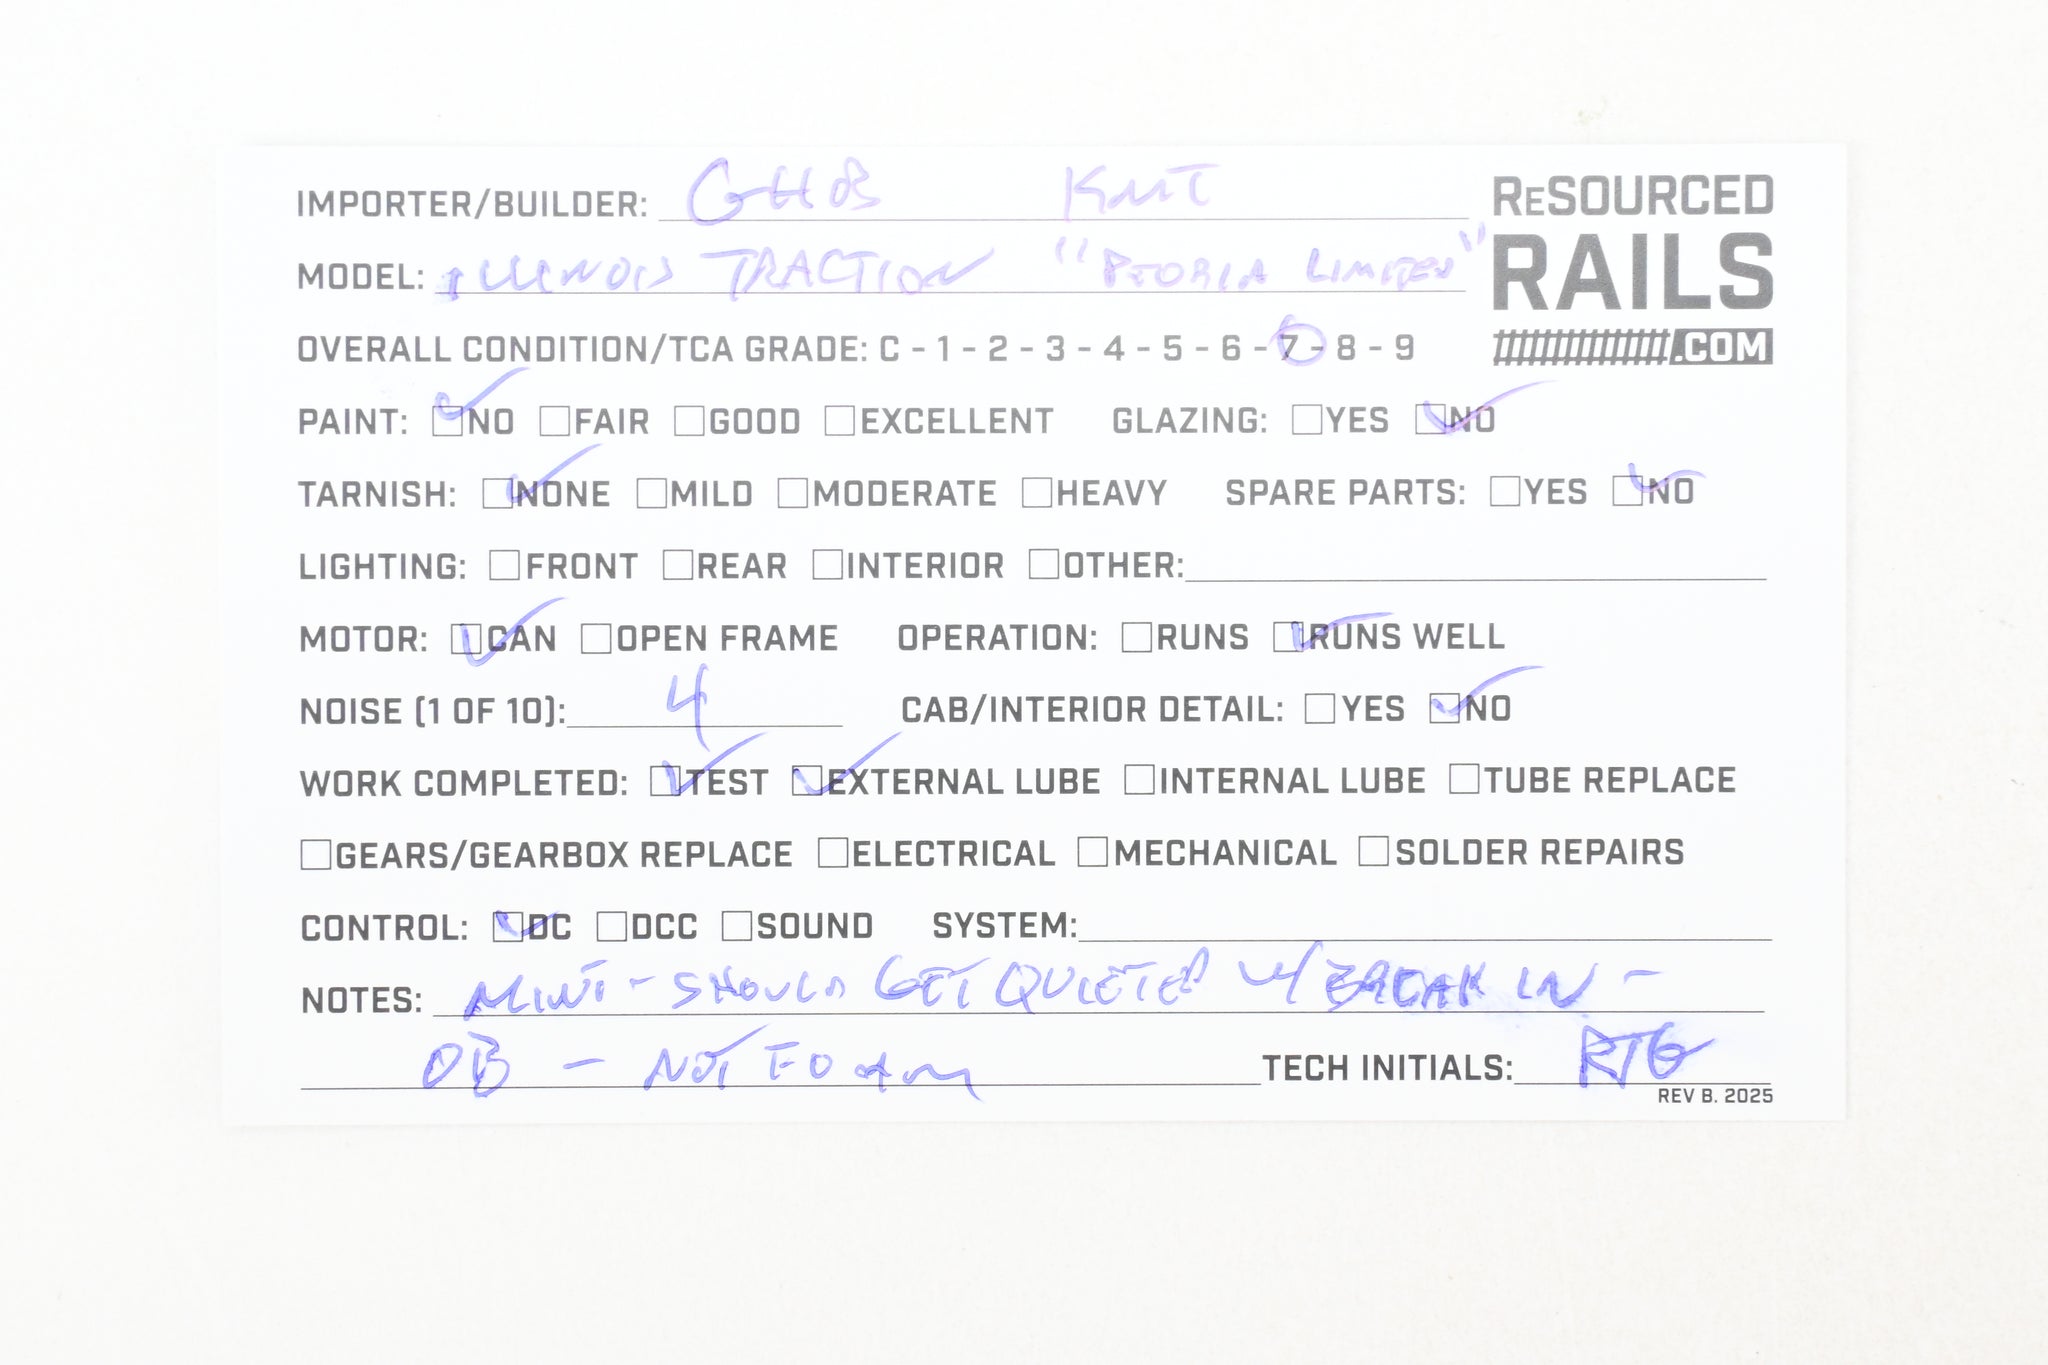 IMPORTER/BUILDER: GHB KMT
ReSOURCED
RAILS
.COM
MODEL: ILLINOIS TRACTION "PEORIA LIMITED"
OVERALL CONDITION/TCA GRADE: C - 1 - 2 - 3 - 4 - 5 - 6 - 7 - 8 - 9
PAINT: ☑NO ☐FAIR ☐GOOD ☐EXCELLENT GLAZING: ☐YES ☑NO
TARNISH: ☑NONE ☐MILD ☐MODERATE ☐HEAVY SPARE PARTS: ☐YES ☑NO
LIGHTING: ☐FRONT ☐REAR ☐INTERIOR ☐OTHER:
MOTOR: ☑CAN ☐OPEN FRAME OPERATION: ☐RUNS ☑RUNS WELL
NOISE (1 OF 10): 4 CAB/INTERIOR DETAIL: ☐YES ☑NO
WORK COMPLETED: ☑TEST ☑EXTERNAL LUBE ☐INTERNAL LUBE ☐TUBE REPLACE
☐GEARS/GEARBOX REPLACE ☐ELECTRICAL ☐MECHANICAL ☐SOLDER REPAIRS
CONTROL: ☑DC ☐DCC ☐SOUND SYSTEM:
NOTES: MINT - SHOULD GET QUIETER W/ BREAK IN -
OB - NOT FOAM TECH INITIALS: RTG
REV B. 2025